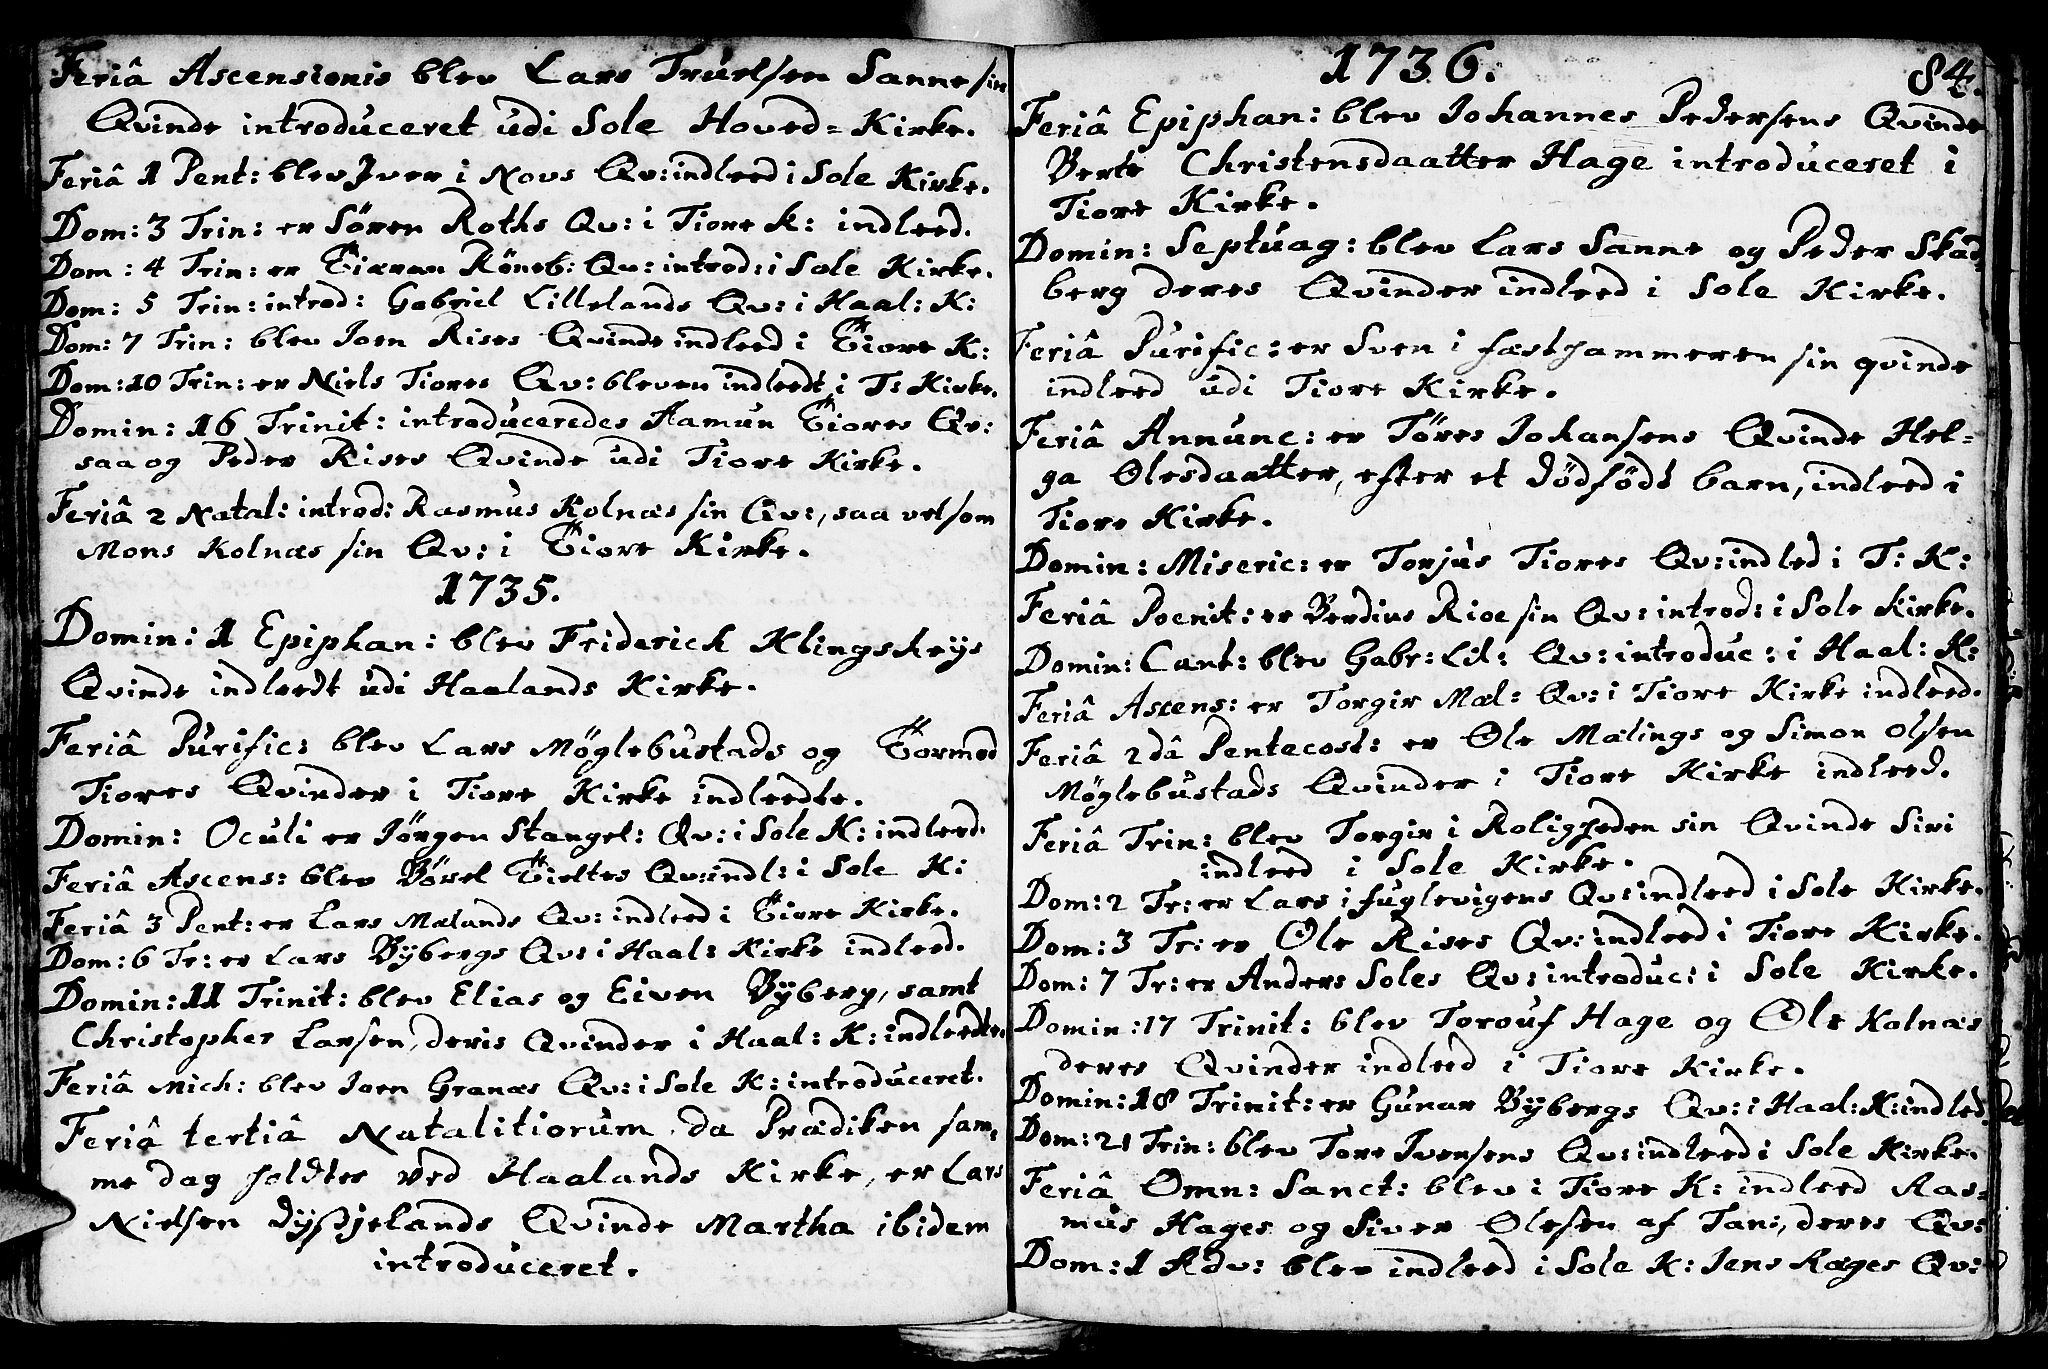 Feriâ Ascensionis blev Lars Truelsen Sanne sin
Qvinde introduceret udi Sole Hoved=Kirke.
Feriâ 1 Pent: blev Iver i Novs Qv: indleed i Sole Kirke.
Dom: 3 Trin: er Sören Roths Qv: i Tiore K: indleed.
Dom: 4 Trin: er Röneb: Qv: introd: i Sole Kirke.
Dom: 5 Trin: introd: Gabriel Lillelands Qv: i Haal: K:
Dom: 7 Trin: blev Joen Rises Qvinde indleed i Tiore K:
Dom: 10 Trin: er Niels Tiores Qv: bleven indleedt i T: Kirke.
Domin: 16 Trinit: introduceredes Aamun Tiores Qv:
saa og Peder Rises Qvinde udi Tiore Kirke.
Feriâ 2 Natal: introd: Rasmus Kolnæs sin Qv:, saa vel som
Mons Kolnæs sin Qv: i Tiore Kirke.
1735.
Domin: 1 Epiphan: blev Friderich Klingsheijs
Qvinde indleedt udi Haalands Kirke.
Feriâ Purific: blev Lars Möglebustads og Tormod
Tiores Qvinder i Tiore Kirke indleedte.
Domin: Oculi er Jörgen Stangel: Qv: i Sole K: indleed.
Feriâ Ascens: blev Börel Tieltes Qv: indl: i Sole K:
Feriâ 3 Pent: er Lars Mælands Qv: indleed i Tiore Kirke.
Dom: 6 Tr: er Lars Bybergs Qv: i Haal: Kirke indleed.
Domin: 11 Trinit: blev Elias og Eiven Byberg, samt
Christopher Larsen, deris Qvinder i Haal: K: indleedte.
Feriâ Mich: blev Joen Granæs Qv: i Sole K: introduceret.
Feriâ tertiâ Natalitiorum, da Prædiken sam=
me dag holdtes ved Haalands Kirke, er Lars
Nielsen Dyssjelands Qvinde Martha ibidem
introduceret.
1736. 84.
Feriâ Epiphan: blev Johannes Pedersens Qvinde
Berte Christensdaatter Hage introduceret i
Tiore Kirke.
Domin: Septuag: blev Lars Sanne og Peder Skad=
berg deres Qvinder indleed i Sole Kirke.
Feriâ Purific: er Sven i fæsthammeren sin qvinde
indleed udi Tiore Kirke.
Feriâ Annunc: er Töres Johansens Qvinde Hel=
ga Olesdaatter, efter et dödfödt barn, indleed i
Tiore Kirke.
Domin: Miseric: er Torjus Tiores Qv: indled i T: K:
Feriâ Poenit: er Berdius Rioe sin Qv: introd: i Sole Kirke.
Domin: Cant: blev Gabr: Lil: Qv: introduc: i Haal: K:
Feriâ Ascens: er Torgir Mæl: Qv: i Tiore Kirke indleed.
Feriâ 2dâ Pentecost: er Ole Mælings og Simon Olsen
Möglebustads Qvinder i Tiore Kirke indleed.
Feriâ Trin: blev Torgir i Roligheden sin Qvinde Siri
indleed i Sole Kirke.
Dom: 2 Tr: er Lars i fuglevigens Qv: indleed i Sole Kirke.
Dom: 3 Tr: er Ole Rises Qv: indleed i Tiore Kirke.
Dom: 7 Tr: er Anders Soles Qv: introduc: i Sole Kirke.
Domin: 17 Trinit: blev Torouf Hage og Ole Kolnæs
deres Qvinder indleed i Tiore Kirke.
Domin: 18 Trinit: er Gunar Bybergs Qv: i Haal: K: indled.
Dom: 21 Trin: blev Tore Iversens Qv: indleed i Sole Kirke.
Feriâ Omn: Sanct: blev i Tiore K: indleed Ras=
mus Hages og Siver Olesen af Tan:, deres Qv:
Dom: 1 Adv: blev indleed i Sole K: Jens Ræges Qv: